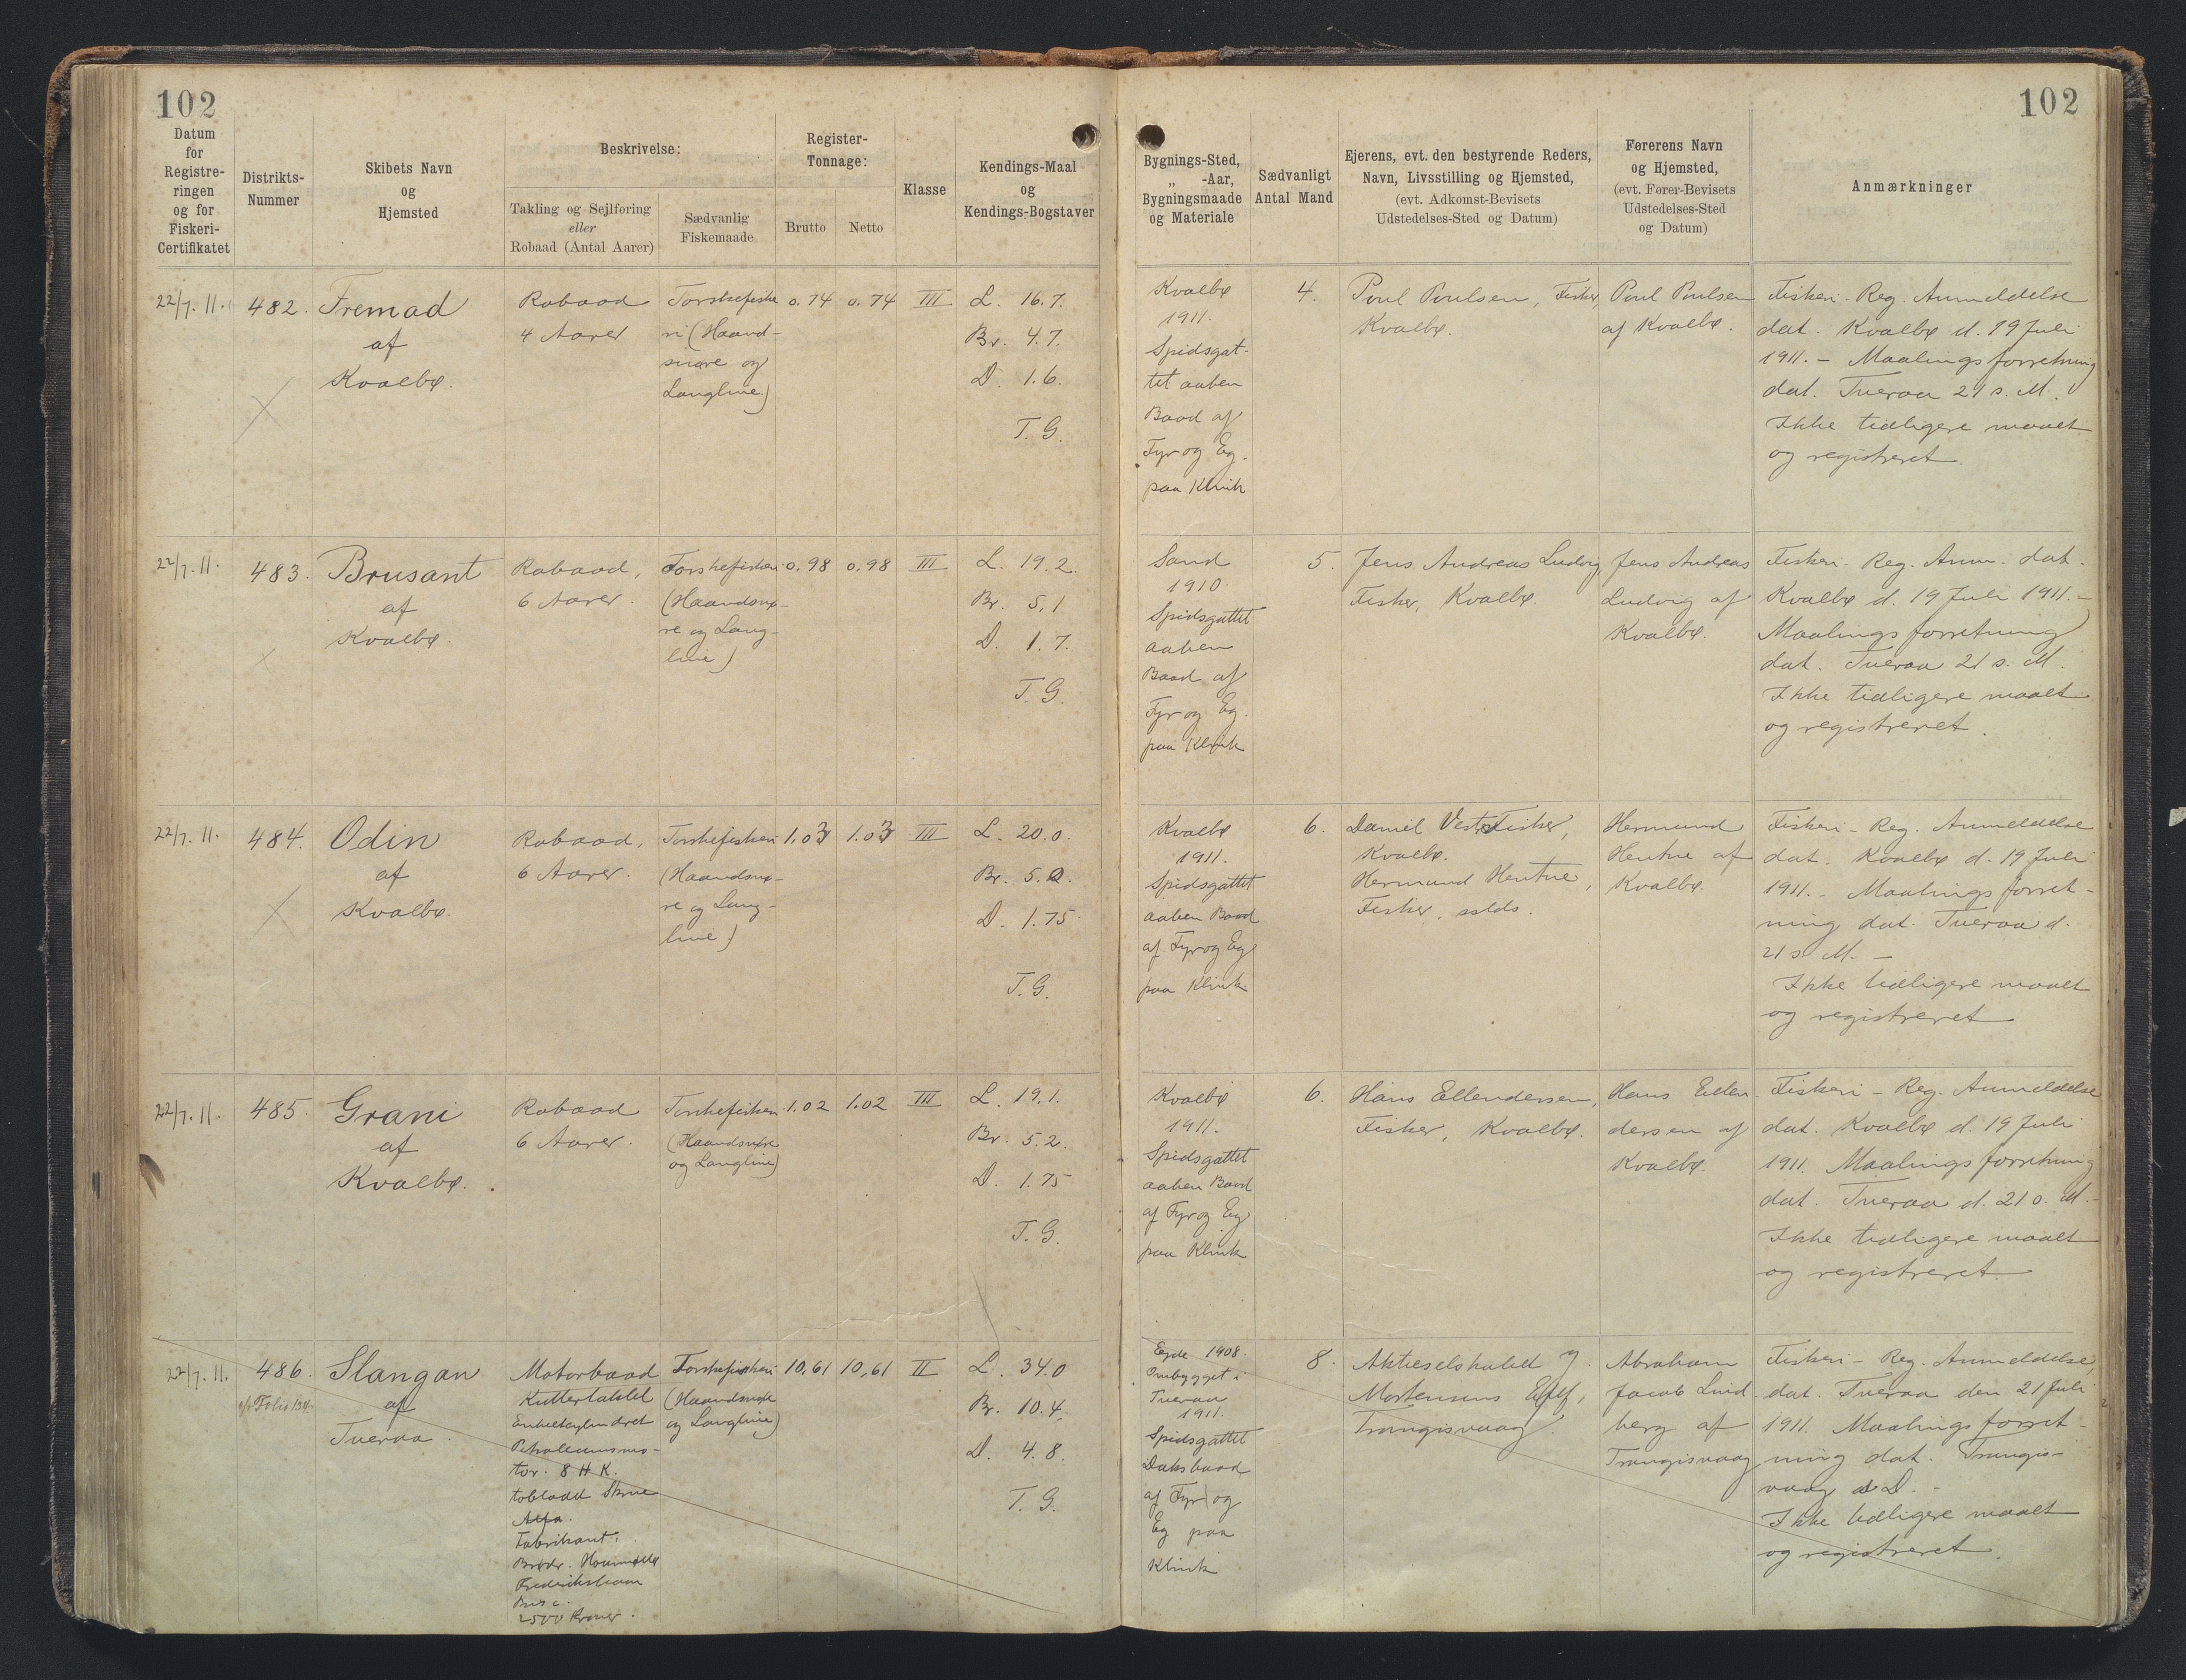 102
Datum
for
Registre-
ringen
og for
Fiskeri-
Certifikatet
Distrikts-
Nummer
Skibets Navn
og
Hjemsted
Beskrivelse:
Takling og Sejlføring
eller
Robaad (Antal Aarer)
Sædvanlig
Fiskemaade
Register-
Tonnage:
Brutto
Netto
Klasse
Kendings-Maal
og
Kendings-Bogstaver
102
Bygnings-Sted,
„ -Aar,
Bygningsmaade
og Materiale
Sædvanligt
Antal Mand
Ejerens, evt. den bestyrende Reders,
Navn, Livsstilling og Hjemsted,
(evt. Adkomst-Bevisets
Udstedelses-Sted og Datum)
Førerens Navn
og Hjemsted,
(evt. Fører-Bevisets
Udstedelses-Sted
og Datum)
Anmærkninger
22/7. 11.
482.
Fremad
af
Kvalbø.
Robaad
4 Aarer
Torskefiske
ri (Haand-
snøre og
Langline)
0.74
0.74
III
L. 16.7.
Br. 4.7.
D. 1.6.
T. G.
Kvalbø
1911.
Spidsgat-
tet aaben
Baad af
Fyr og Eg.
paa Klink
4.
Poul Poulsen, Fisker,
Kvalbø.
Poul Poulsen
af Kvalbø.
Fiskeri-Reg. Anmeldelse
dat. Kvalbø d. 19 Juli
1911. - Maalingsforretning
dat. Tveraa 21 s. M.
Ikke tidligere maalt
og registreret.
22/7. 11.
483.
Brusant
af
Kvalbø.
Robaad,
6 Aarer.
Torskefiskeri
(Haandsnø-
re og Lang-
line)
0.98
0.98
III
L. 19.2.
Br. 5.1
D. 1.7.
T. G.
Sand
1910.
Spidsgattet
aaben
Baad af
Fyr og Eg.
paa Klink
5.
Jens Andreas Ludvig,
Fisker, Kvalbø.
Jens Andreas
Ludvig af
Kvalbø.
Fiskeri-Reg. Anm. dat.
Kvalbø d. 19 Juli 1911. -
Maalingsforretning
dat. Tveraa 21 s. M.
Ikke tidligere maalt
og registreret.
22/7. 11.
484.
Odin
af
Kvalbø.
Robaad,
6 Aarer.
Torskefiskeri
(Haandsnø-
re og Lang-
line)
1.03
1.03
III
L. 20.0.
Br. 5.2.
D. 1.75
T. G.
Kvalbø
1911.
Spidsgattet
aaben Baad
af Fyr og Eg
paa Klink.
6.
Daniel Vest, Fisker,
Kvalbø.
Hermund Hentze,
Fisker, sstds.
Hermund
Hentze af
Kvalbø.
Fiskeri-Reg. Anmeldelse
dat. Kvalbø d. 19 Juli
1911. - Maalingsforret-
ning dat. Tveraa d.
21 s M. -
Ikke tidligere maalt
og registreret
22/7. 11.
485.
Grani
af
Kvalbø.
Robaad
6 Aarer.
Torskefiskeri
(Haandsnøre
og Langline)
1.02
1.02
III
L. 19.1.
Br. 5.2.
D. 1.75
T. G.
Kvalbø
1911.
Spidsgattet
aaben Baad
af Fyr og Eg
paa Klink
6.
Hans Ellendersen,
Fisker, Kvalbø.
Hans Ellen-
dersen af
Kvalbø.
Fiskeri-Reg. Anmeldelse
dat. Kvalbø d. 19 Juli
1911. Maalingsforretning
dat. Tveraa d. 21 s. M. -
Ikke tidligere maalt
og registreret.
22/7. 11.
486.
Folio 134
Slangan
af
Tveraa.
Motorbaad
Kuttertaklet
Enkeltcylindret
Petroleumsmo-
tor. 8 H K.
tobladd Skrue
Alfa.
Fabrikant:
Brødr. Houmøller
Frederikshavn
Pris c.
2500 Kroner.
Torskefiskeri
(Haandsnøre
og Langline)
10,61
10,61
II
L. 34.0
Br. 10.4.
D. 4.8.
T. G.
Ejde 1908.
Ombygget i
Tveraa
1911.
Spidsgattet
Dæksbaad
af Fyr og
Eg paa
Klink
8.
Aktieselskabet
Mortensens Eftf,
Trangisvaag.
Abraham
Jacob Lind-
berg af
Trangisvaag
Fiskeri-Reg. Anmeldelse,
dat. Tveraa den 21 Juli
1911. Maalingsforret-
ning dat. Trangis-
vaag s D. -
Ikke tidligere maalt
og registreret.